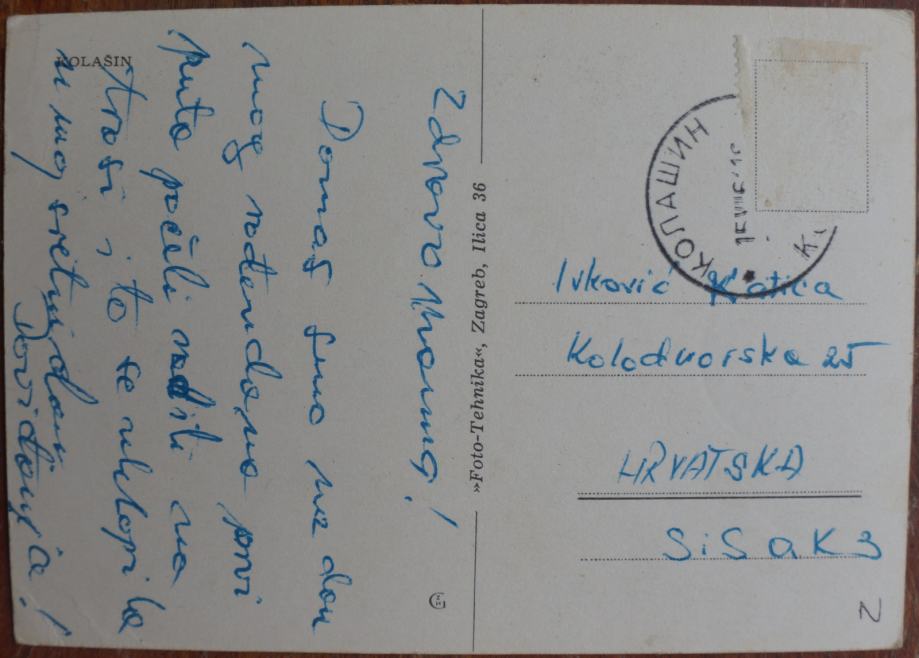 KOLAŠIN
Zdravo mama!
Danas smo na dan
mog rođendana prvi
puta počeli raditi na
trasi i to se uklopilo
u moj sretni dan
Doviđenja!
»Foto-Tehnika«, Zagreb, Ilica 36
КОЛАШИН
Ivković Katica
Kolodvorska 25
HRVATSKA
SiSak 3
2